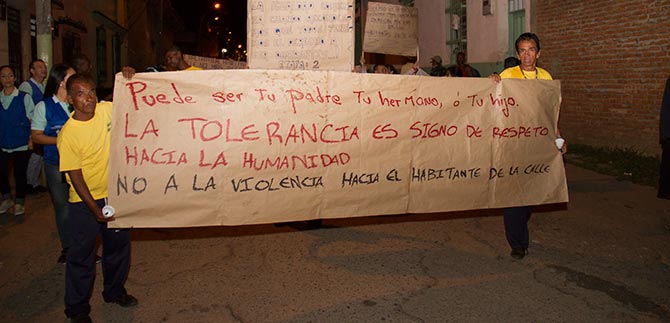 Puede ser Tu padre Tu hermono, ó Tu hijo.
LA TOLERANCIA ES SIGNO DE RESPETO
HACIA LA HUMANIDAD
NO A LA VIOLENCIA HACIA EL HABITANTE DE LA CALLE